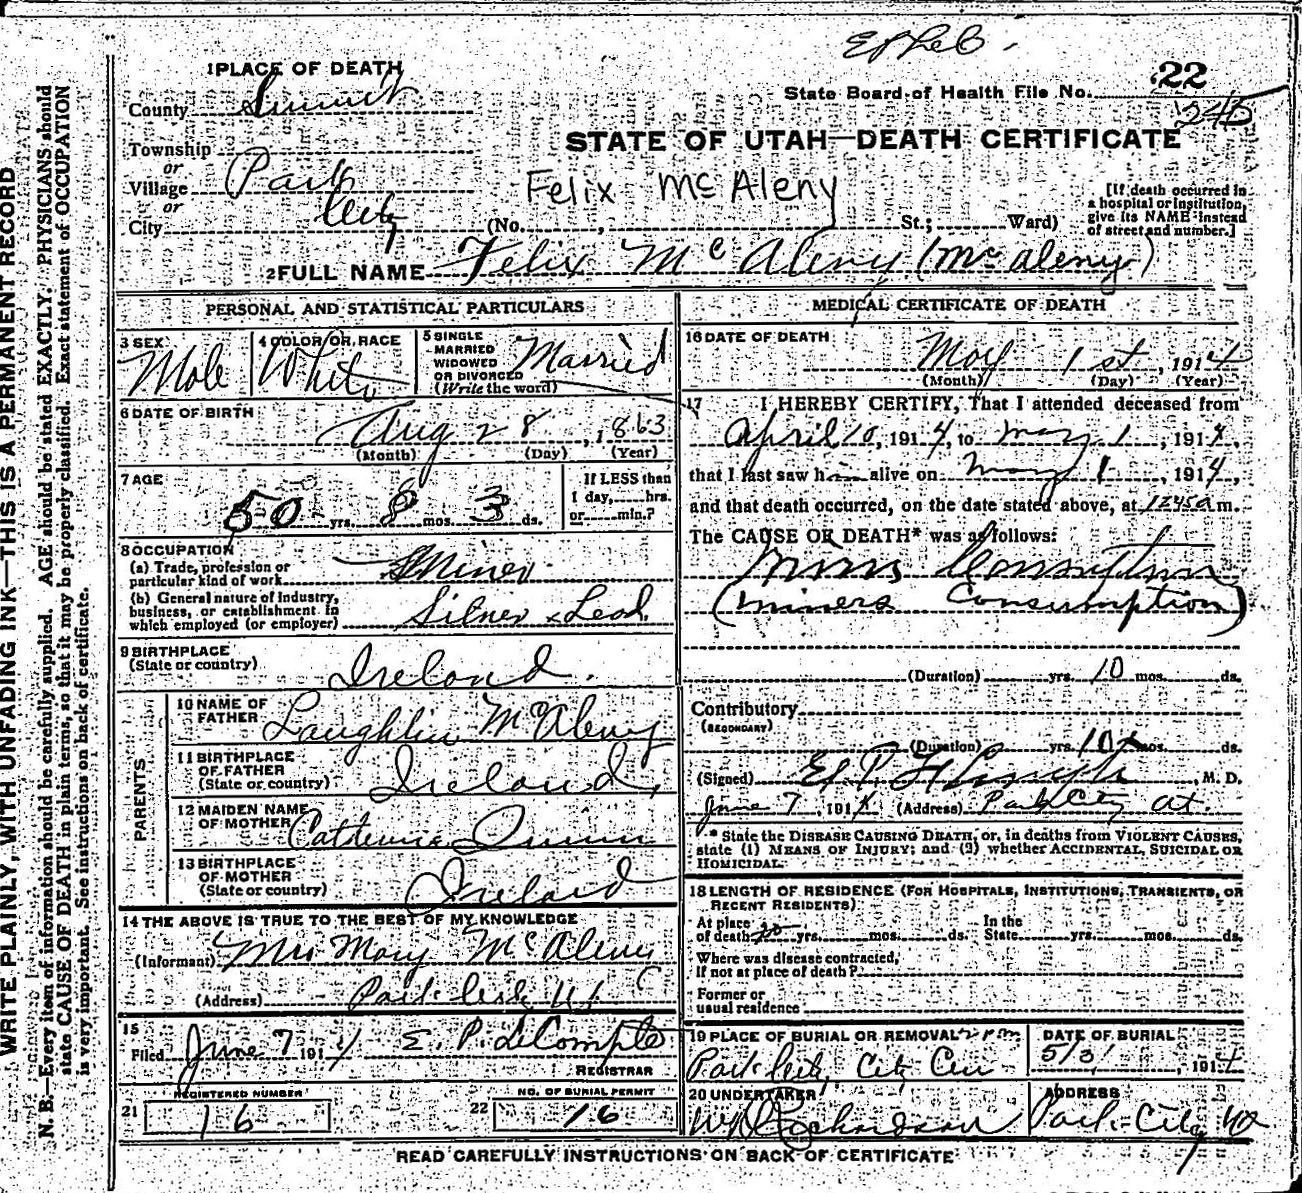 22
State Board of Health File No.
1 PLACE OF DEATH
County Summit
STATE OF UTAH—DEATH CERTIFICATE
Township
or
Village Park
or
City City
Felix McAleny
(No. , St.; Ward)
[If death occurred in
a hospital or institution,
give its NAME instead
of street and number.]
2 FULL NAME Felix Mc Aleny (McAleny)
PERSONAL AND STATISTICAL PARTICULARS
3 SEX
Male
4 COLOR OR RACE
White
5 SINGLE
MARRIED
WIDOWED
OR DIVORCED
(Write the word)
Married
6 DATE OF BIRTH
Aug 28, 1863
(Month) (Day) (Year)
7 AGE
50 yrs. 8 mos. 3 ds.
If LESS than
1 day, hrs.
or min.?
8 OCCUPATION
(a) Trade, profession or
particular kind of work Miner
(b) General nature of Industry,
business, or establishment in
which employed (or employer) Silver & Lead
9 BIRTHPLACE
(State or country) Ireland.
PARENTS
10 NAME OF
FATHER Laughlin McAleny
11 BIRTHPLACE
OF FATHER
(State or country) Ireland,
12 MAIDEN NAME
OF MOTHER Catherine Quinn
13 BIRTHPLACE
OF MOTHER
(State or country) Ireland
14 THE ABOVE IS TRUE TO THE BEST OF MY KNOWLEDGE
(Informant) Mrs Mary McAleny
(Address) Park City Ut
15
Filed June 7 1914 E. P. LeCompte
REGISTRAR
21 REGISTERED NUMBER
16
22 NO. OF BURIAL PERMIT
16
MEDICAL CERTIFICATE OF DEATH
16 DATE OF DEATH
May 1st, 1914
(Month) (Day) (Year)
17 I HEREBY CERTIFY, That I attended deceased from
April 10, 1914, to May 1, 1914,
that I last saw him alive on May 1, 1914,
and that death occurred, on the date stated above, at 1245a m.
The CAUSE OF DEATH* was as follows:
Miners Consumption
(Miners Consumption)
(Duration) yrs. 10 mos. ds.
Contributory
(SECONDARY)
(Duration) yrs. 10 mos. ds.
(Signed) , M. D.
June 7, 1914 (Address) Park City Ut.
* State the DISEASE CAUSING DEATH, or, in deaths from VIOLENT CAUSES,
state (1) MEANS OF INJURY; and (2) whether ACCIDENTAL, SUICIDAL OR
HOMICIDAL.
18 LENGTH OF RESIDENCE (FOR HOSPITALS, INSTITUTIONS, TRANSIENTS, OR
RECENT RESIDENTS)
At place
of death yrs. mos. ds.
In the
State yrs. mos. ds.
Where was disease contracted,
if not at place of death?
Former or
usual residence
19 PLACE OF BURIAL OR REMOVAL
Park City, City Cem
DATE OF BURIAL
5/3, 1914
20 UNDERTAKER
Richardson
ADDRESS
Park City
READ CAREFULLY INSTRUCTIONS ON BACK OF CERTIFICATE
WRITE PLAINLY, WITH UNFADING INK—THIS IS A PERMANENT RECORD
N. B.—Every item of information should be carefully supplied. AGE should be stated EXACTLY. PHYSICIANS should
state CAUSE OF DEATH in plain terms, so that it may be properly classified. Exact statement of OCCUPATION
is very important. See instructions on back of certificate.